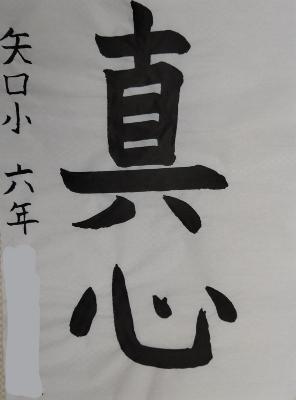 真心
矢口小 六年